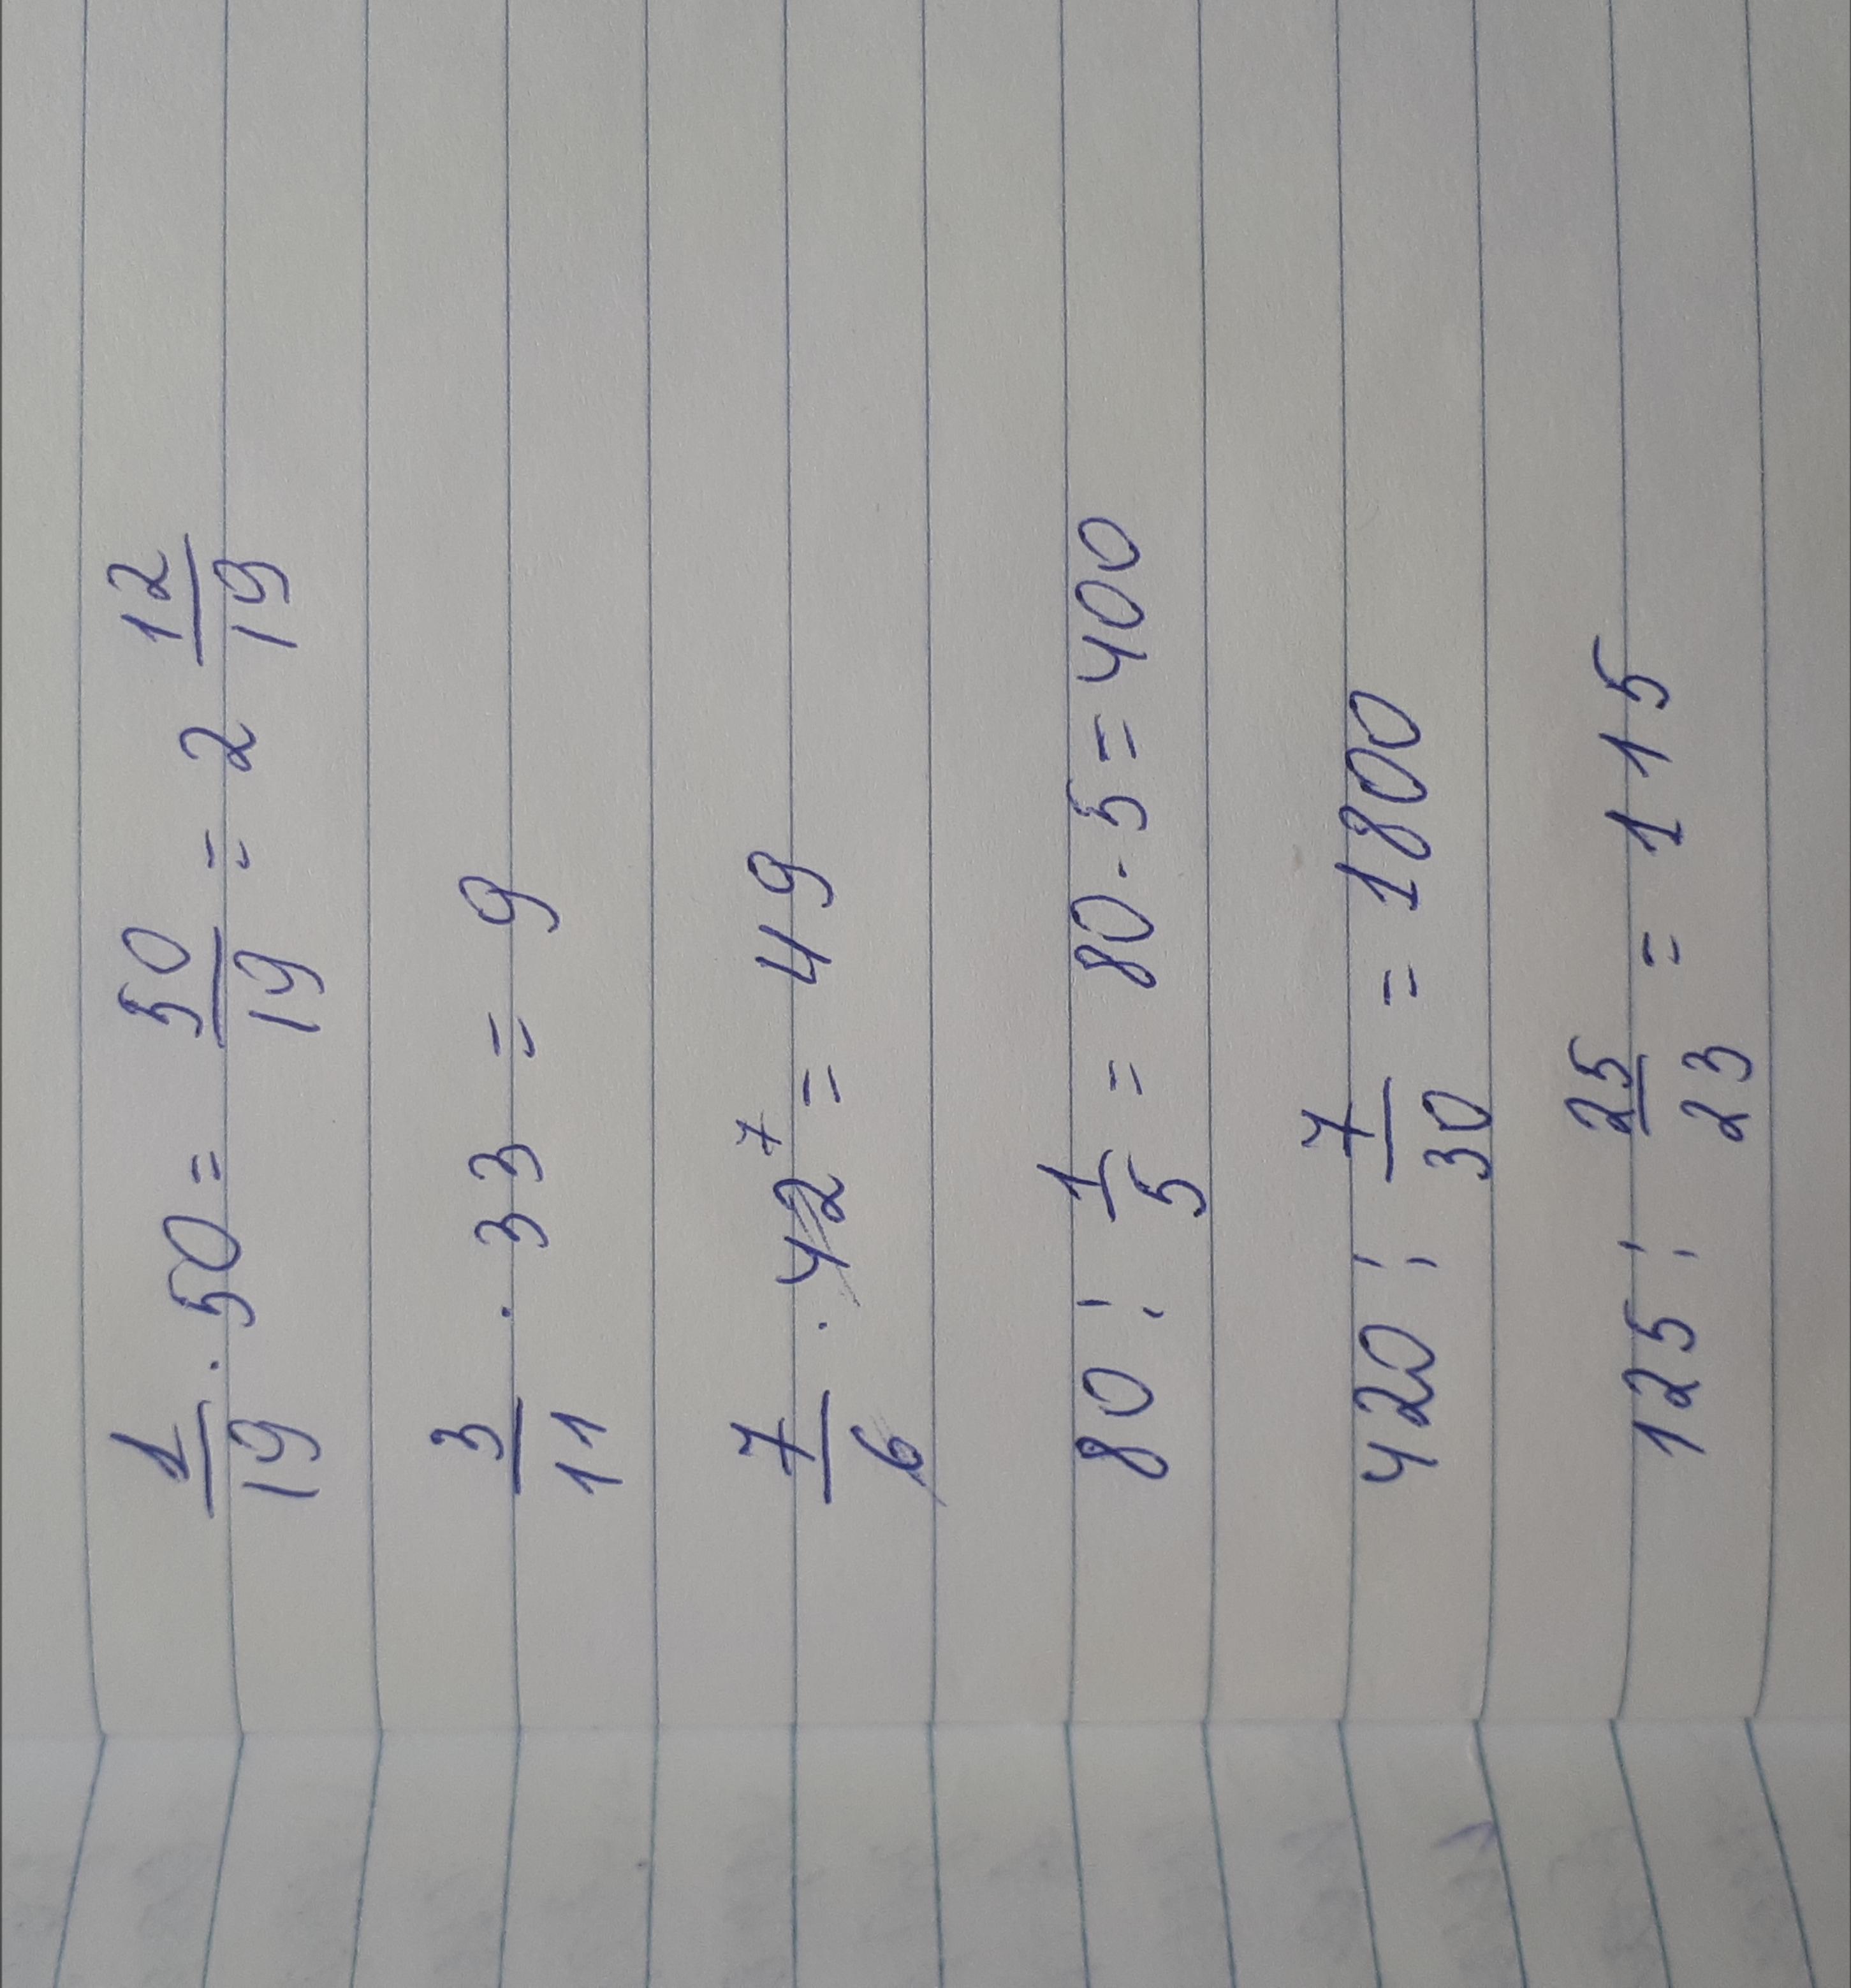 1/19 · 50 = 50/19 = 2 12/19
3/11 · 33 = 9
7/6 · 42 7 = 49
80 : 1/5 = 80 · 5 = 400
420 : 7/30 = 1800
125 : 25/23 = 115